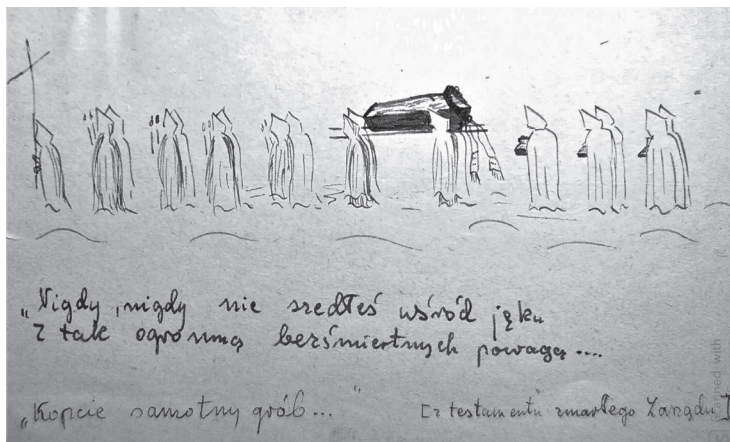 „Nigdy, nigdy nie szedłeś wśród jęku
Z tak ogromną bezśmiertnych powagą....
„Kopcie samotny grób..." [z testamentu zmarłego Zarządu]